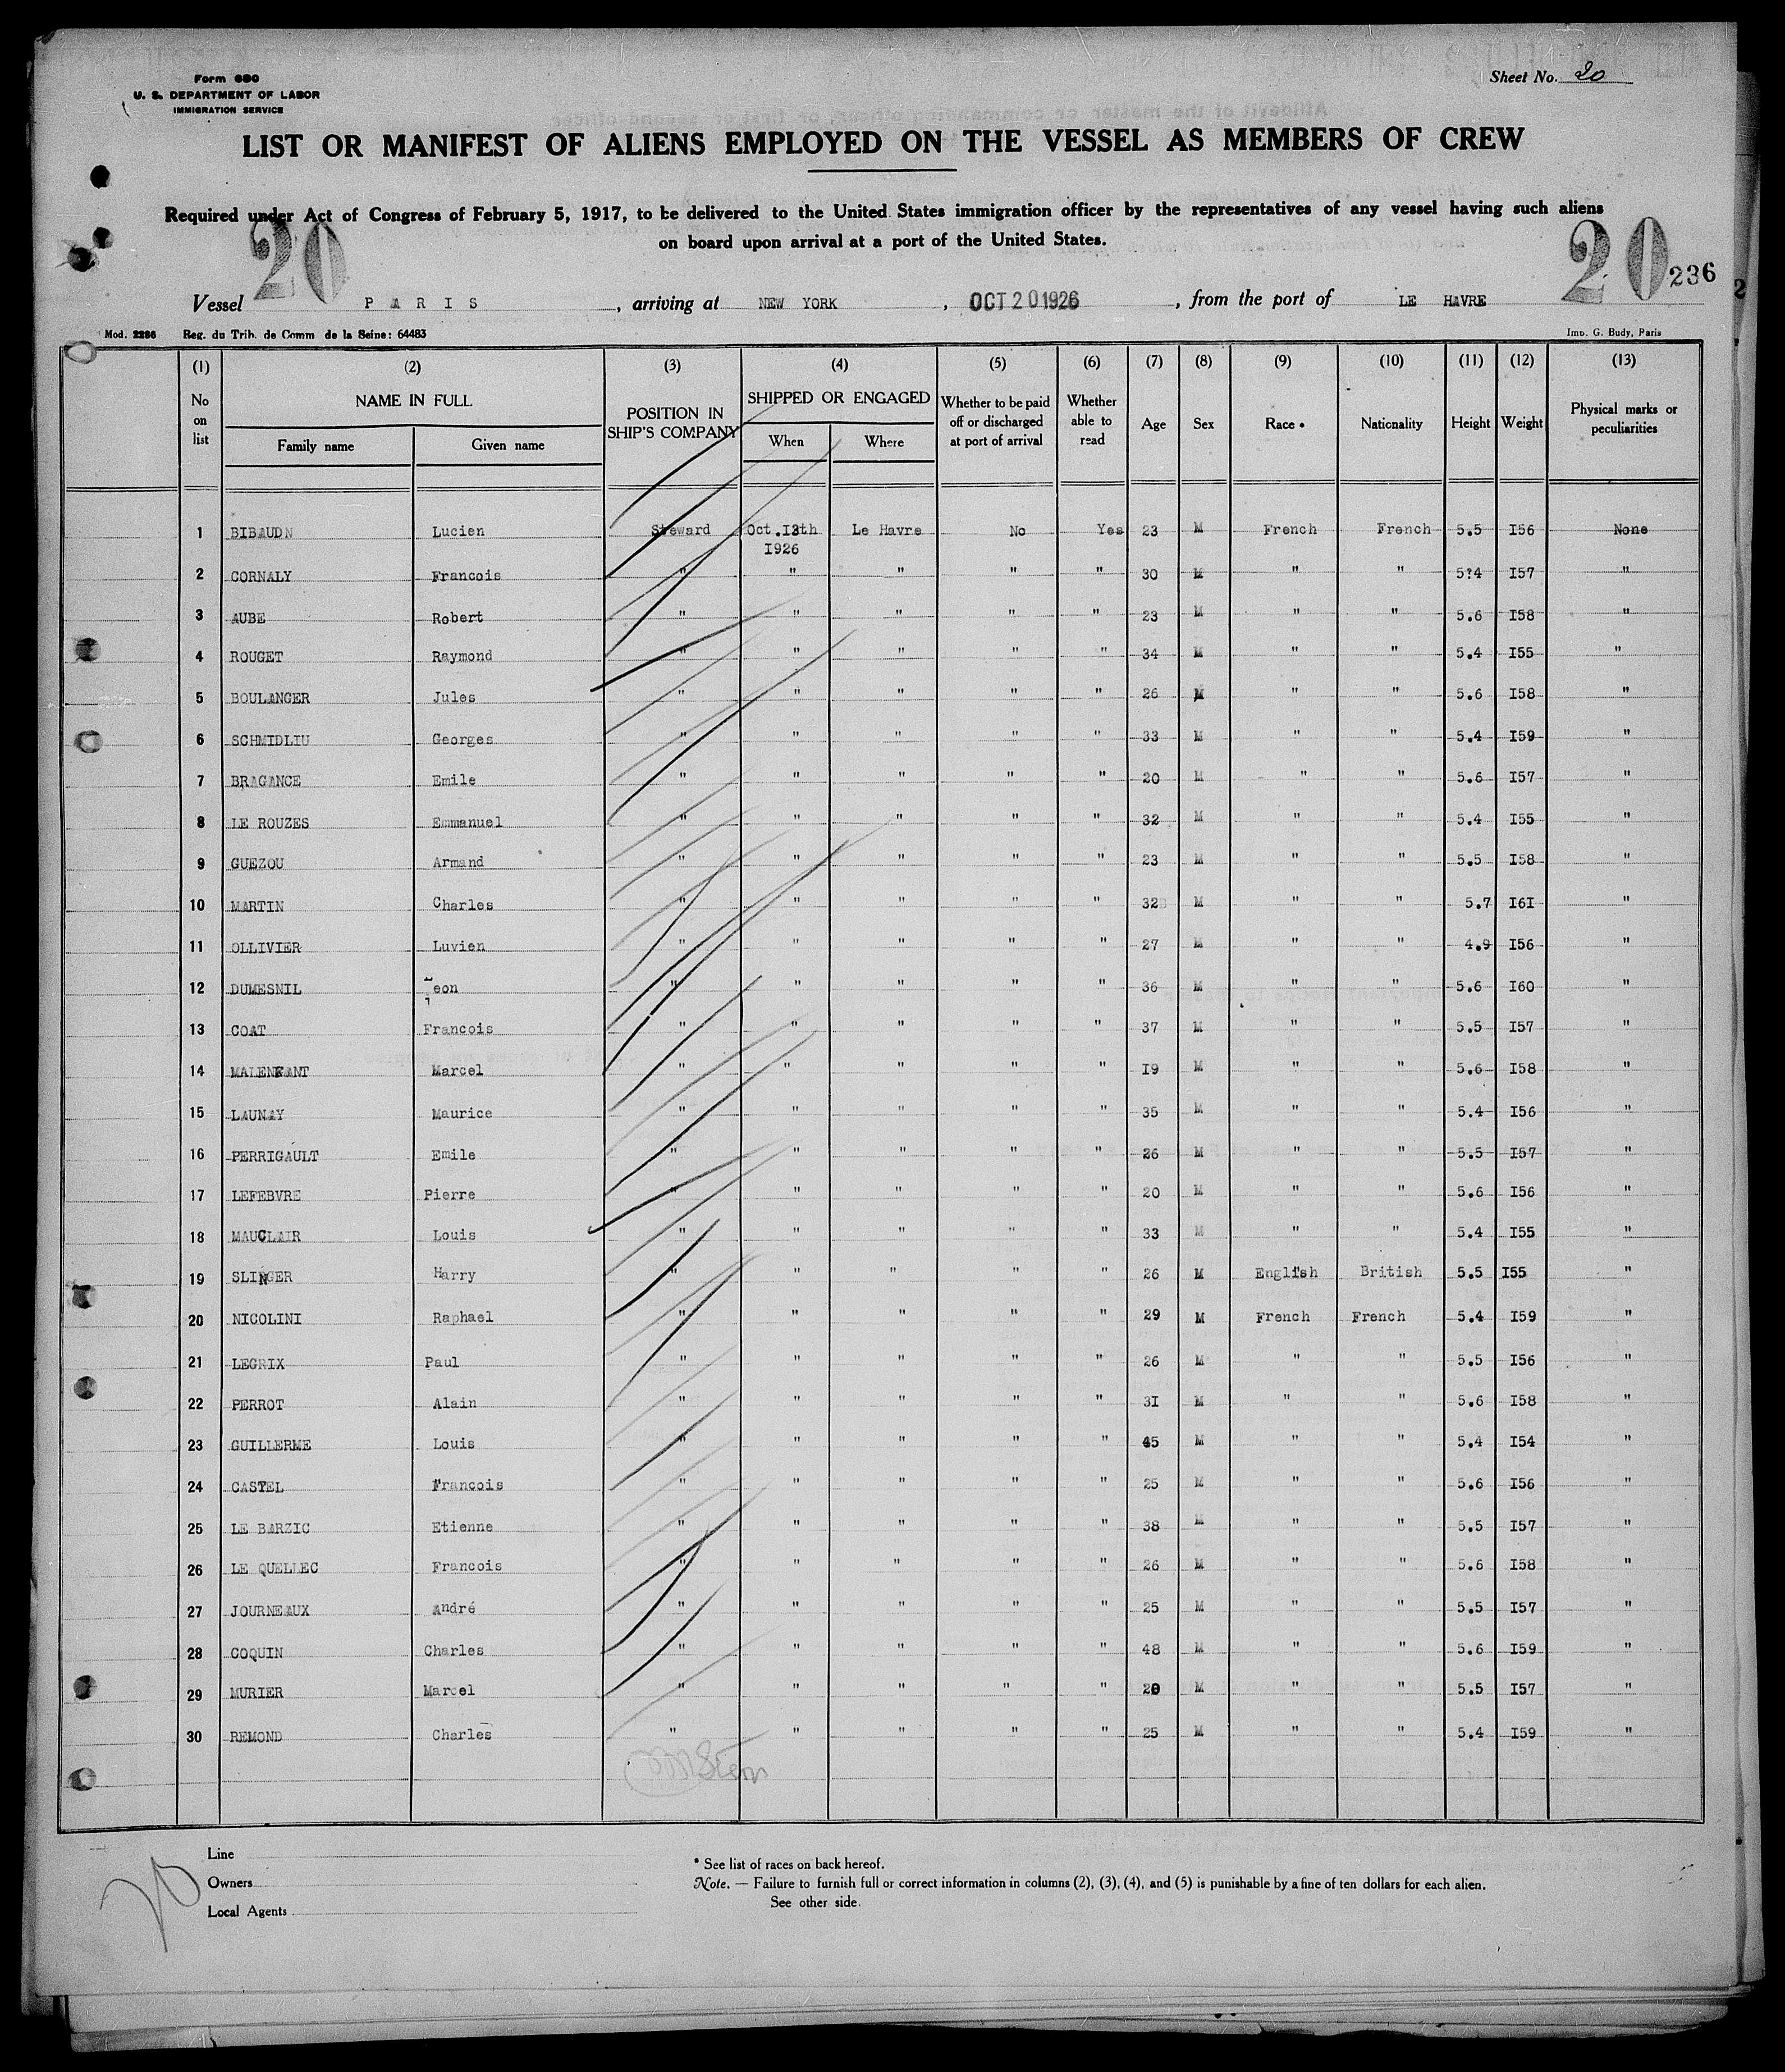 Form 680
U. S. DEPARTMENT OF LABOR
IMMIGRATION SERVICE
Sheet No. 20
LIST OR MANIFEST OF ALIENS EMPLOYED ON THE VESSEL AS MEMBERS OF CREW
Required under Act of Congress of February 5, 1917, to be delivered to the United States immigration officer by the representatives of any vessel having such aliens
on board upon arrival at a port of the United States.
20 20 236
Vessel PARIS, arriving at NEW YORK, OCT 20 1926, from the port of LE HAVRE
Mod. 2286 Reg. du Trib. de Comm de la Seine: 64483 Imp. G. Budy, Paris
(1) (2) (3) (4) (5) (6) (7) (8) (9) (10) (11) (12) (13)
No on list NAME IN FULL Family name Given name POSITION IN SHIP'S COMPANY SHIPPED OR ENGAGED When Where Whether to be paid off or discharged at port of arrival Whether able to read Age Sex Race * Nationality Height Weight Physical marks or peculiarities
1 BIBAUDN Lucien Steward Oct.13th 1926 Le Havre No Yes 23 M French French 5.5 I56 None
2 CORNALY Francois " " " " " 30 M " " 5?4 I57 "
3 AUBE Robert " " " " " 23 M " " 5.6 I58 "
4 ROUGET Raymond " " " " " 34 M " " 5.4 I55 "
5 BOULANGER Jules " " " " " 26 M " " 5.6 I58 "
6 SCHMIDLIU Georges " " " " " 33 M " " 5.4 I59 "
7 BRAGANCE Emile " " " " " 20 M " " 5.6 I57 "
8 LE ROUZES Emmanuel " " " " " 32 M " " 5.4 I55 "
9 GUEZOU Armand " " " " " 23 M " " 5.5 I58 "
10 MARTIN Charles " " " " " 32 M " " 5.7 I6I "
11 OLLIVIER Luvien " " " " " 27 M " " 4.9 I56 "
12 DUMESNIL Leon " " " " " 36 M " " 5.6 I60 "
13 COAT Francois " " " " " 37 M " " 5.5 I57 "
14 MALENFANT Marcel " " " " " I9 M " " 5.6 I58 "
15 LAUNAY Maurice " " " " " 35 M " " 5.4 I56 "
16 PERRIGAULT Emile " " " " " 26 M " " 5.5 I57 "
17 LEFEBVRE Pierre " " " " " 20 M " " 5.6 I56 "
18 MAUCLAIR Louis " " " " " 33 M " " 5.4 I55 "
19 SLINGER Harry " " " " " 26 M English British 5.5 I55 "
20 NICOLINI Raphael " " " " " 29 M French French 5.4 I59 "
21 LEGRIX Paul " " " " " 26 M " " 5.5 I56 "
22 PERROT Alain " " " " " 3I M " " 5.6 I58 "
23 GUILLERME Louis " " " " " 45 M " " 5.4 I54 "
24 CASTEL Francois " " " " " 25 M " " 5.6 I56 "
25 LE BARZIC Etienne " " " " " 38 M " " 5.5 I57 "
26 LE QUELLEC Francois " " " " " 26 M " " 5.6 I58 "
27 JOURNEAUX André " " " " " 25 M " " 5.5 I57 "
28 COQUIN Charles " " " " " 48 M " " 5.6 I59 "
29 MURIER Marcel " " " " " M " " 5.5 I57 "
30 REMOND Charles " " " " " 25 M " " 5.4 I59 "
Line
Owners
Local Agents
20
* See list of races on back hereof.
Note. — Failure to furnish full or correct information in columns (2), (3), (4), and (5) is punishable by a fine of ten dollars for each alien.
See other side.